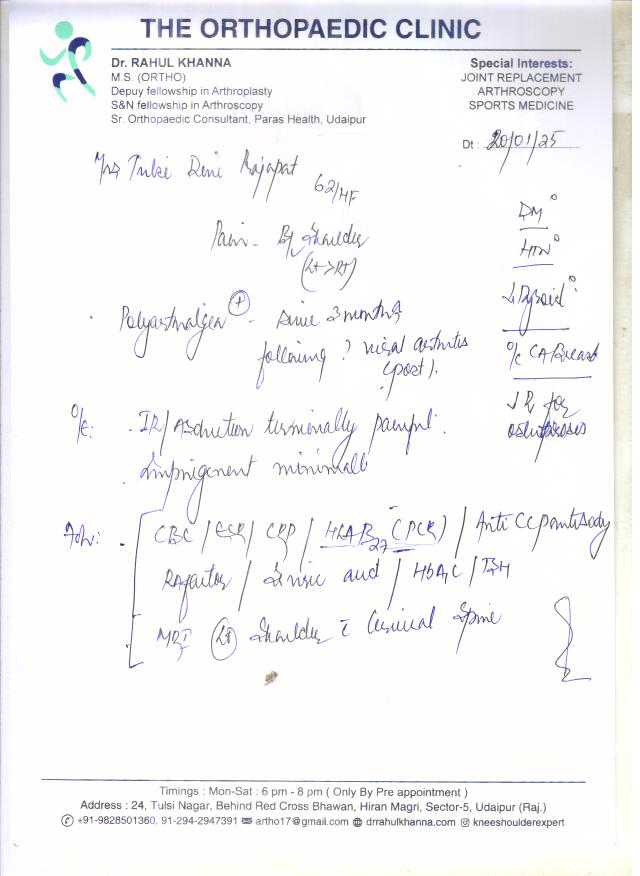 THE ORTHOPAEDIC CLINIC
Dr. RAHUL KHANNA
M.S. (ORTHO)
Depuy fellowship in Arthroplasty
S&N fellowship in Arthroscopy
Sr. Orthopaedic Consultant, Paras Health, Udaipur
Special Interests:
JOINT REPLACEMENT
ARTHROSCOPY
SPORTS MEDICINE
Dt : 20/01/25
Mrs Tulsi Devi
62/HF
Pain - B/L Shoulder
(Lt>Rt)
Polyarthralgea + - since 3 months
following ? viral arthritis
(post).
DM°
HTN°
Thyroid°
o/c CA Breast
R for
osteoporosis
o/e: . IR/Abduction terminally painful.
. Impingement minimal
Adv: . CBC / ESR / CRP / HLA B27 (PCR) / Anti CCP antibody
RA factor / S. uric acid / HbA1C / TSH
MRI (Lt) Shoulder c̄ Cervical Spine
Timings : Mon-Sat : 6 pm - 8 pm ( Only By Pre appointment )
Address : 24, Tulsi Nagar, Behind Red Cross Bhawan, Hiran Magri, Sector-5, Udaipur (Raj.)
+91-9828501360, 91-294-2947391 artho17@gmail.com drrahulkhanna.com kneeshoulderexpert